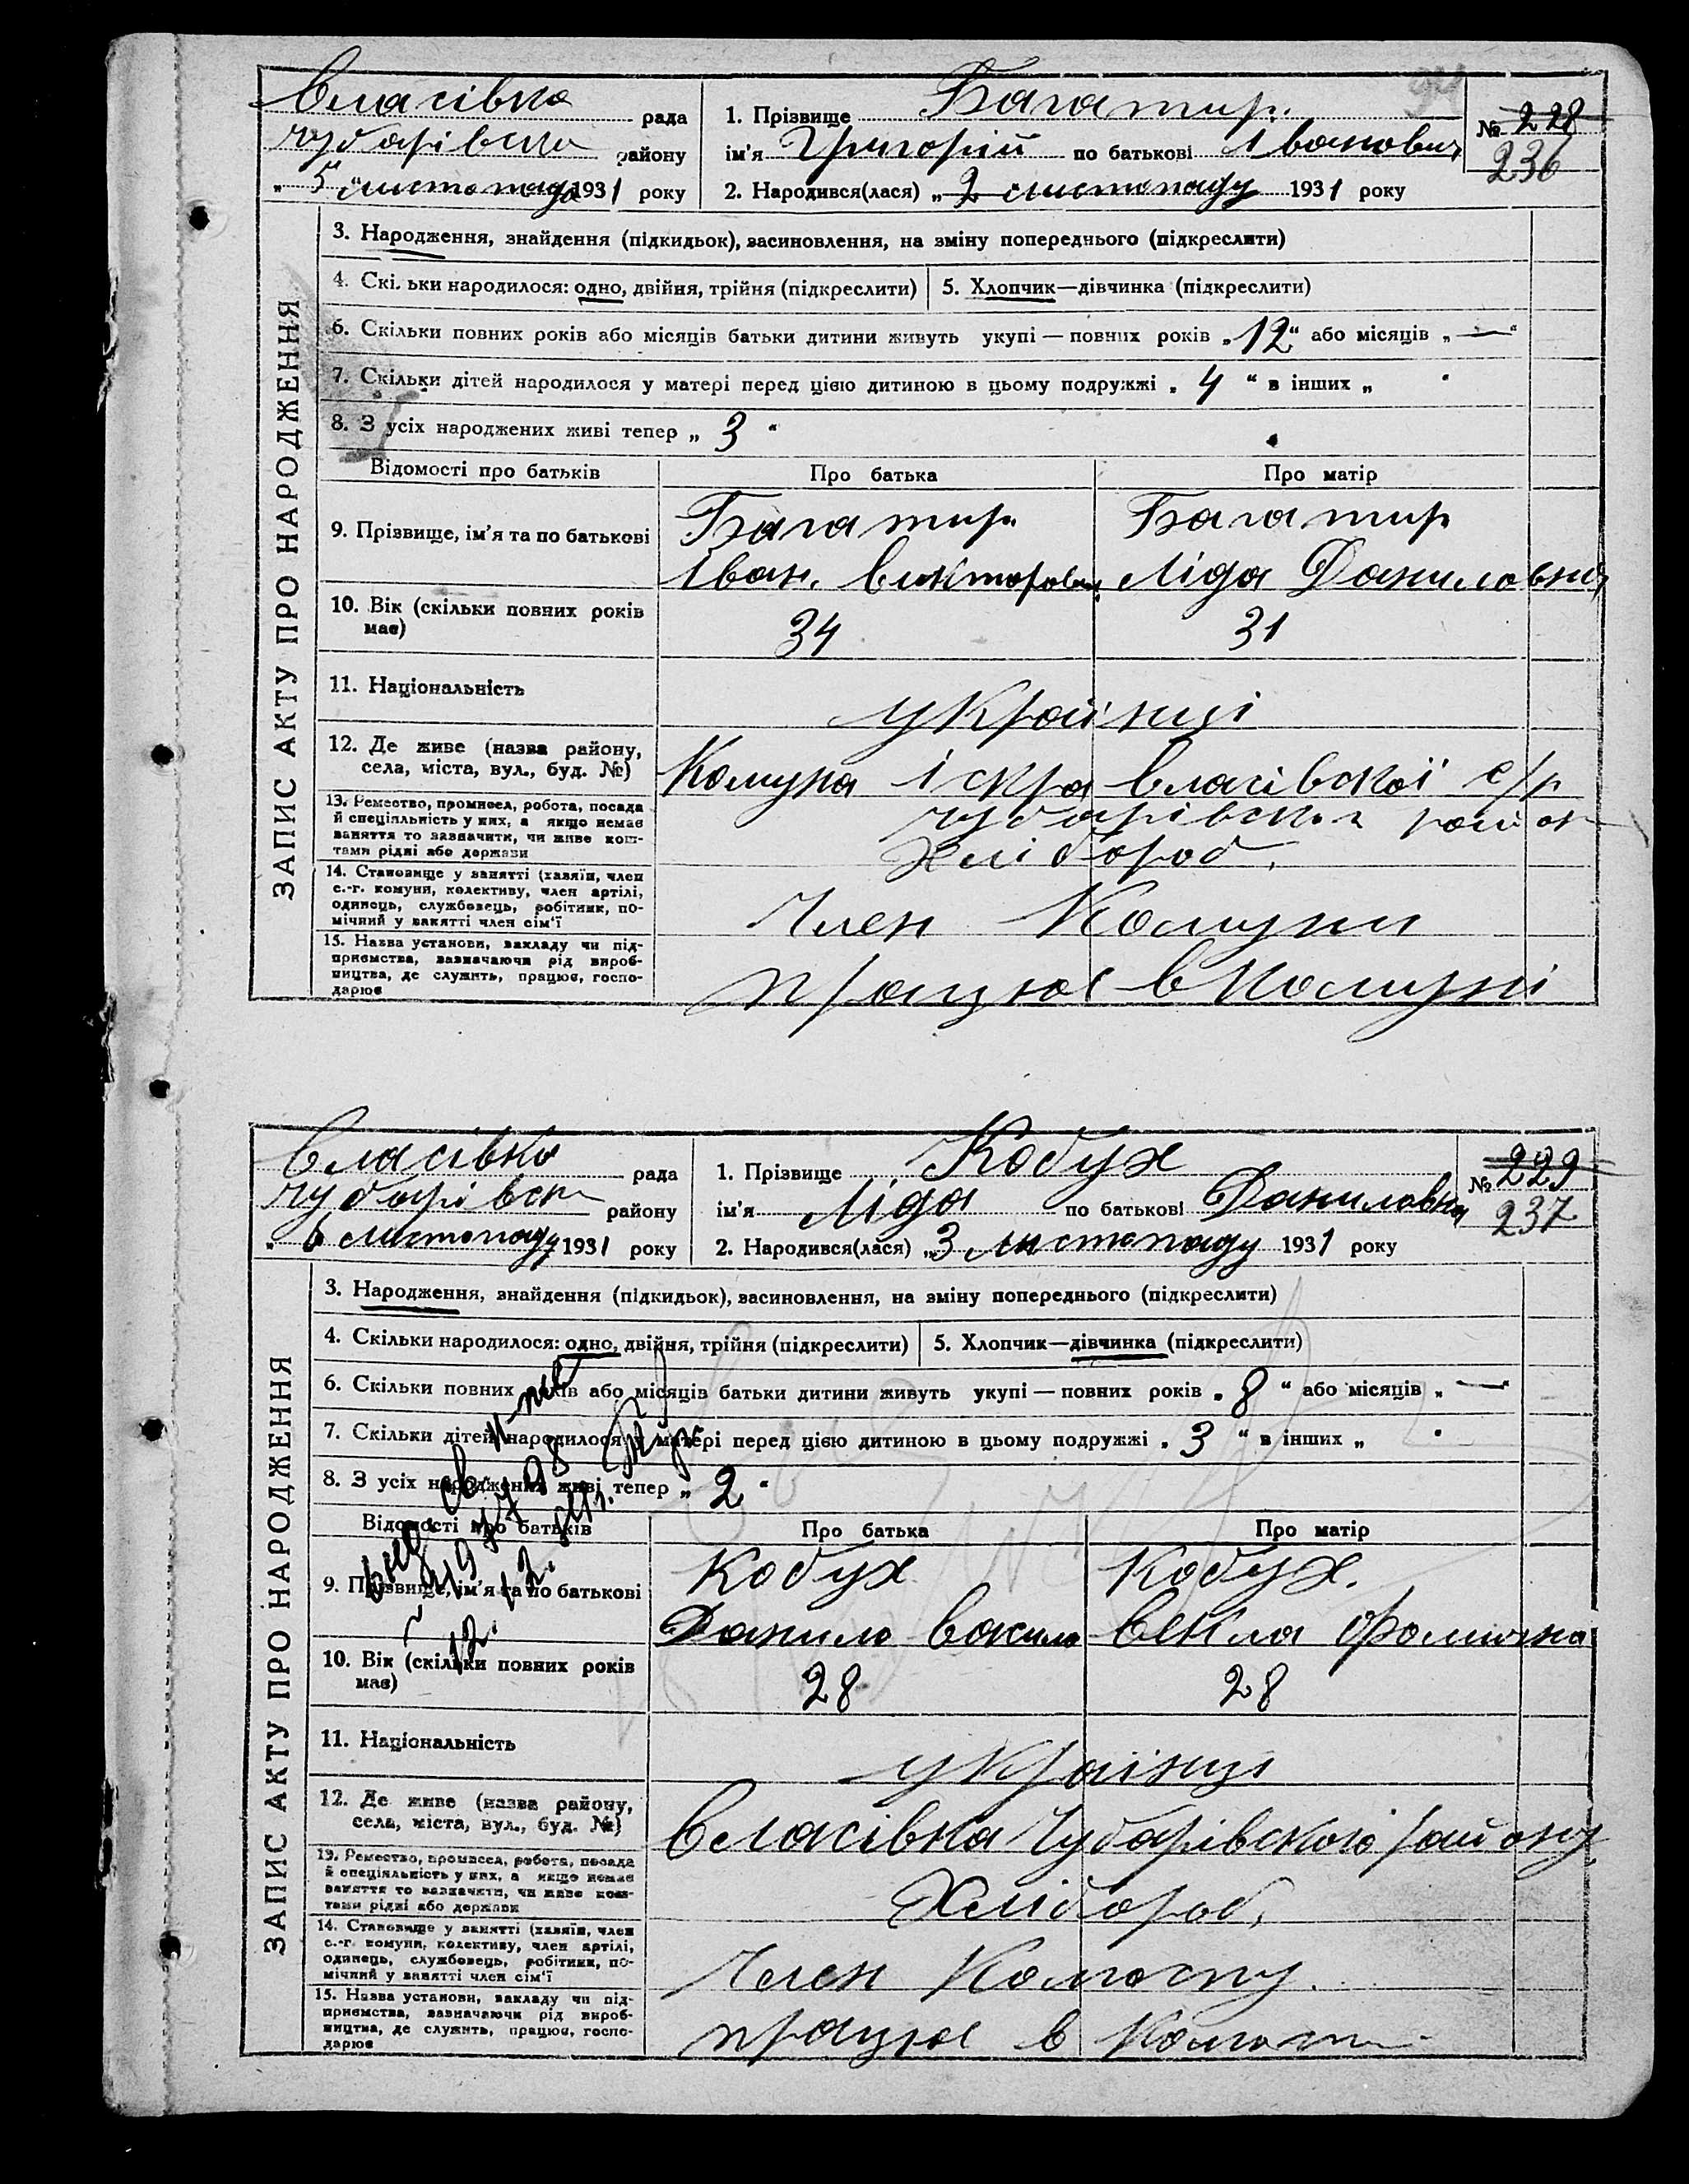 94
Власівка рада
Чубарівськ району
„5“ листопада 1931 року
1. Прізвище Багатир.
ім'я Григорій по батькові Іванович
2. Народився(лася) „2 листопаду 1931 року
№ 228
236
ЗАПИС АКТУ ПРО НАРОДЖЕННЯ
3. Народження, знайдення (підкидьок), засиновлення, на зміну попереднього (підкреслити)
4. Скільки народилося: одно, двійня, трійня (підкреслити) 5. Хлопчик—дівчинка (підкреслити)
6. Скільки повних років або місяців батьки дитини живуть укупі — повних років „12“ або місяців „—“
7. Скільки дітей народилося у матері перед цією дитиною в цьому подружжі „ 4 “ в інших „ “
8. З усіх народжених живі тепер „ 3 “
Відомості про батьків Про батька Про матір
9. Прізвище, ім'я та по батькові
Багатир Багатир
Іван. Викторович Ліда Даниловна
10. Вік (скільки повних років має) 34 31
11. Національність українці
12. Де живе (назва району, села, міста, вул., буд. №)
Комуна Іскра Власівської с/р
Чубарівськ район
13. Ремество, промисел, робота, посада й спеціяльність у них, а якщо немає заняття то зазначити, чи живе коштами рідні або держави
Хлібороб.
14. Становище у занятті (хазяїн, член с.-г. комуни, колективу, член артілі, одинець, службовець, робітник, помічний у занятті член сім'ї
Член Комуни
15. Назва установи, закладу чи підприємства, зазначаючи рід виробництва, де служить, працює, господарює
працює в Комуні
Власівка рада
Чубарівськ району
„6 листопаду 1931 року
1. Прізвище Кобух
ім'я Ліда по батькові Даниловна
2. Народився(лася) „3 листопаду 1931 року
№ 229
237
ЗАПИС АКТУ ПРО НАРОДЖЕННЯ
3. Народження, знайдення (підкидьок), засиновлення, на зміну попереднього (підкреслити)
4. Скільки народилося: одно, двійня, трійня (підкреслити) 5. Хлопчик—дівчинка (підкреслити)
6. Скільки повних років або місяців батьки дитини живуть укупі — повних років „ 8 “ або місяців „—“
7. Скільки дітей народилося у матері перед цією дитиною в цьому подружжі „ 3 “ в інших „ “
8. З усіх народжених живі тепер „ 2 “
Відомості про батьків Про батька Про матір
9. Прізвище, ім'я та по батькові
Кобух Кобух.
Данило Векла
10. Вік (скільки повних років має) 28 28
11. Національність українці
12. Де живе (назва району, села, міста, вул., буд. №)
Власівка Чубарівського району
13. Ремество, промисел, робота, посада й спеціяльність у них, а якщо немає заняття то зазначити, чи живе коштами рідні або держави
Хлібороб.
14. Становище у занятті (хазяїн, член с.-г. комуни, колективу, член артілі, одинець, службовець, робітник, помічний у занятті член сім'ї
Член Колгоспу.
15. Назва установи, закладу чи підприємства, зазначаючи рід виробництва, де служить, працює, господарює
працює в Колгосп